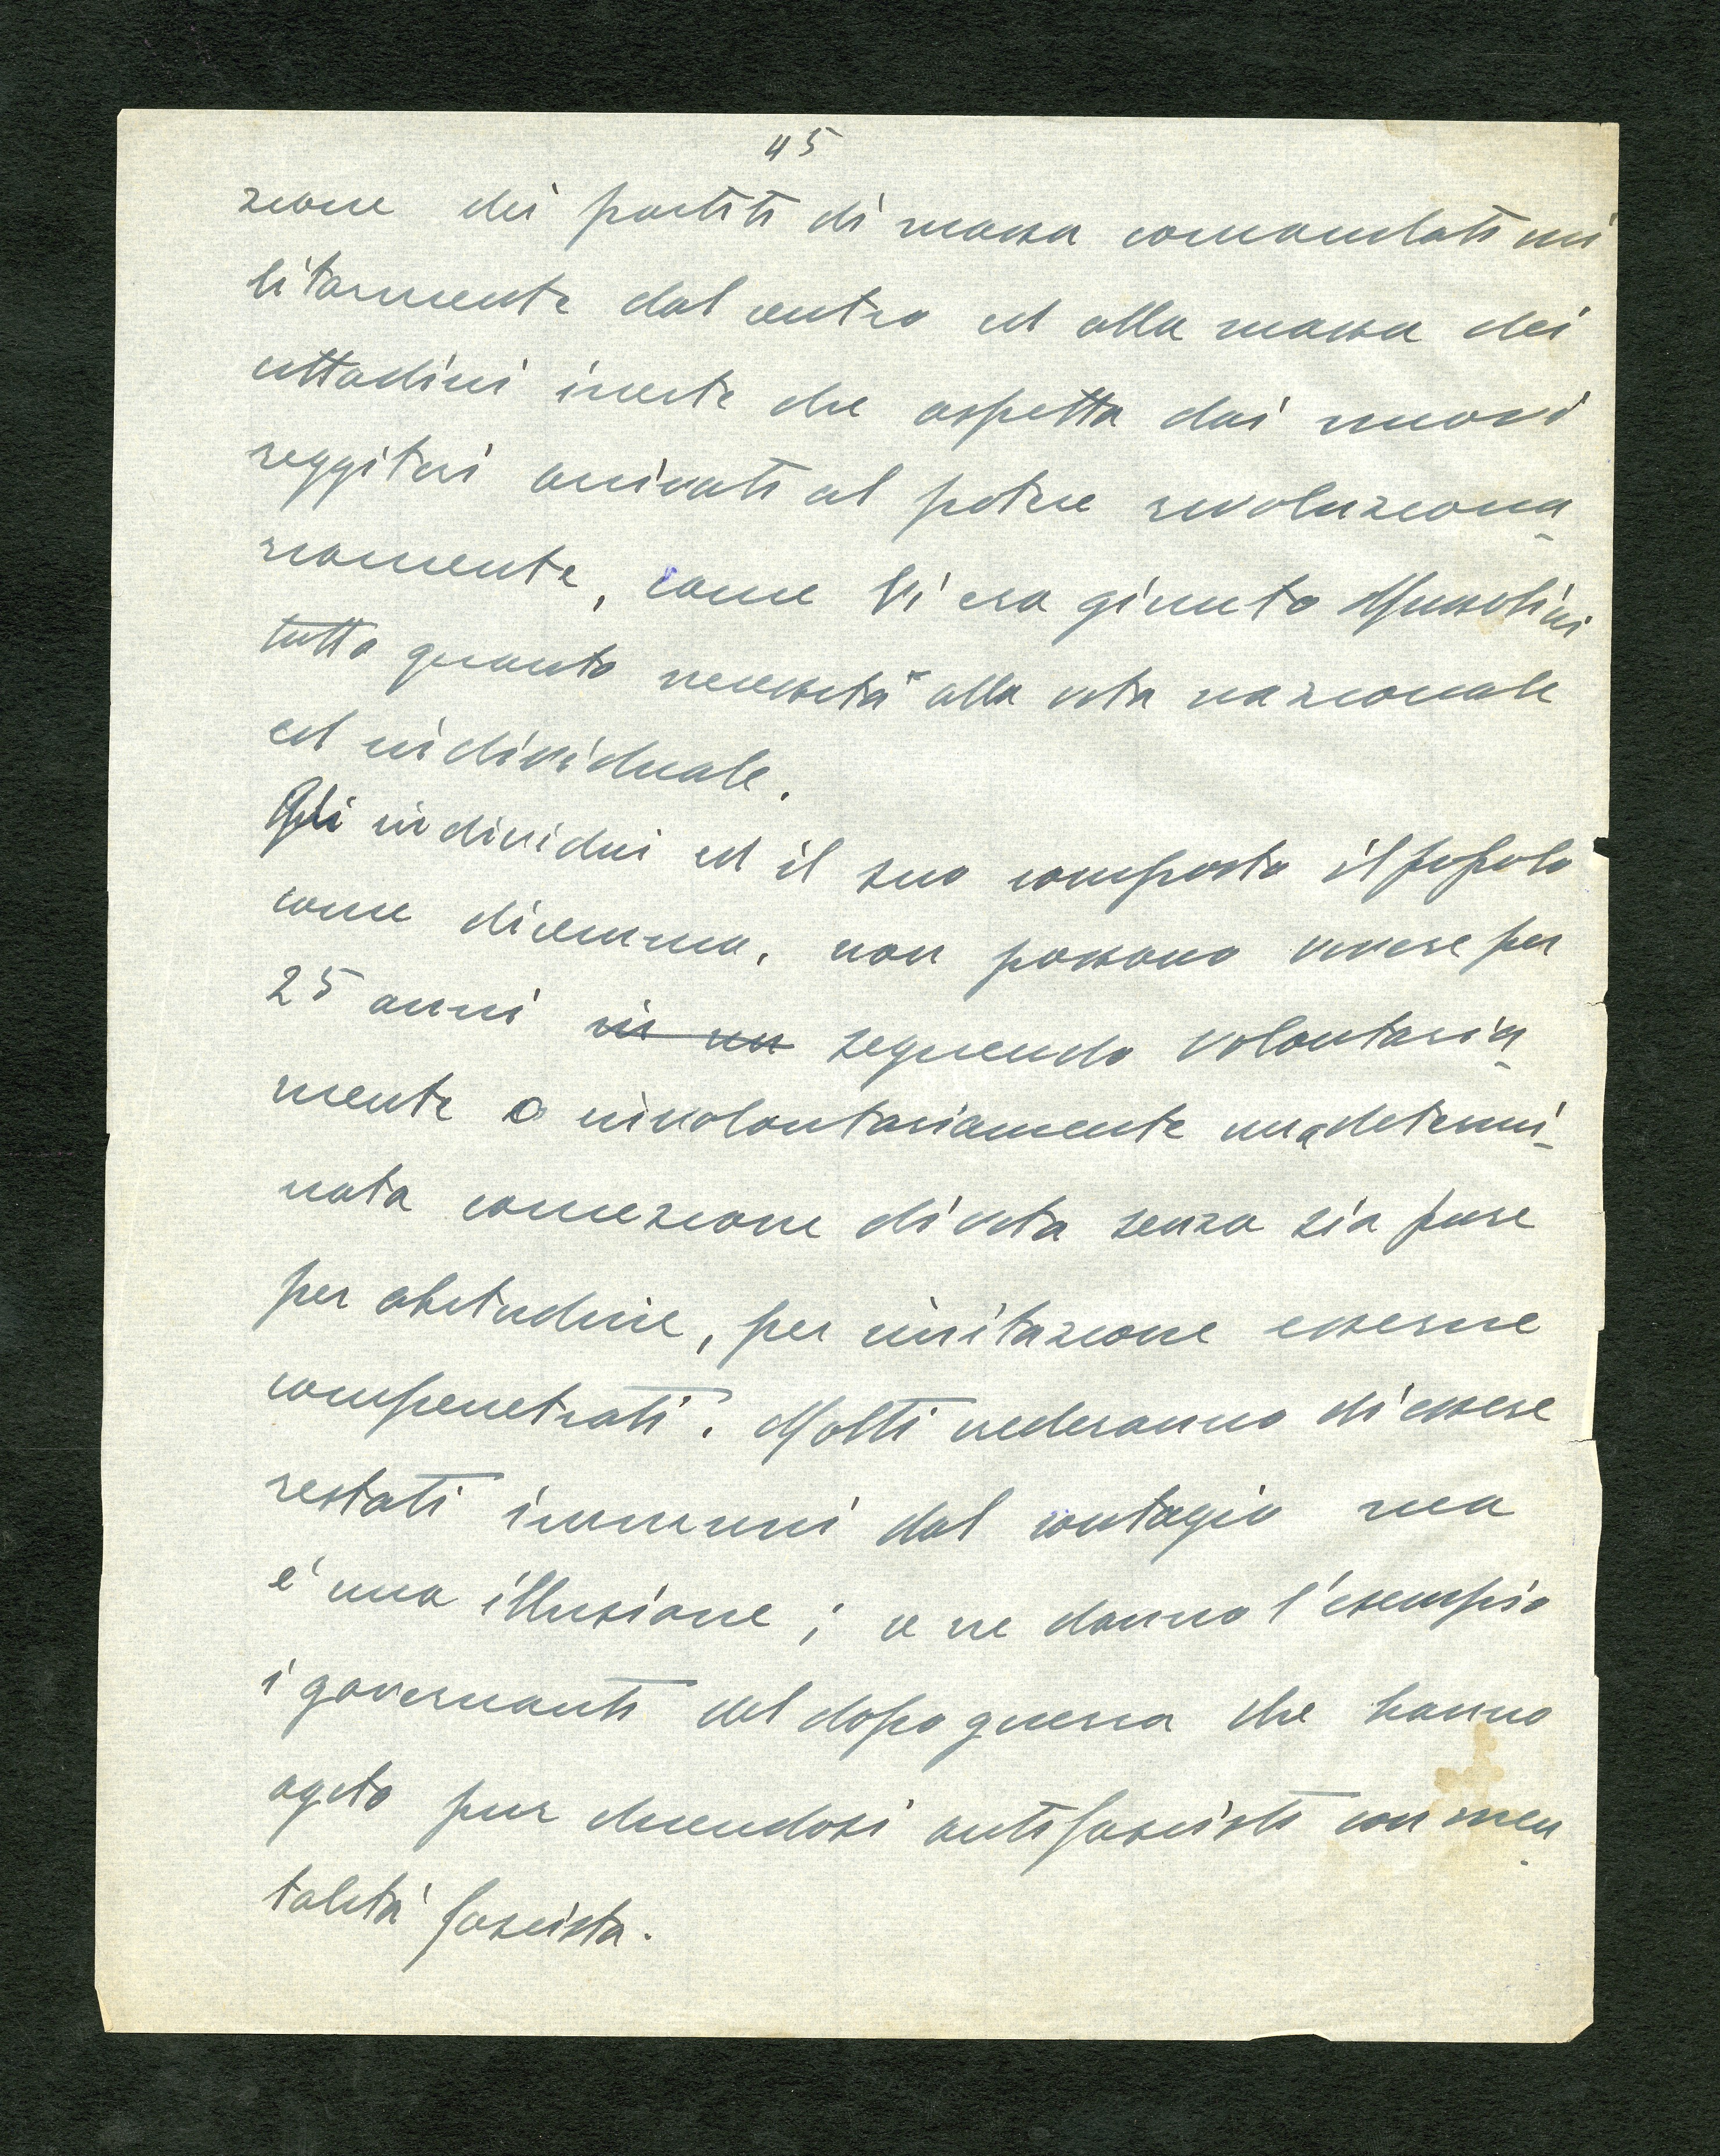 45
zione dei partiti di massa comandati mi
litarmente dal centro ed alla massa dei
cittadini inerte che aspetta dai nuovi
reggitori arrivati al potere rivoluziona-
riamente, come vi era giunto Mussolini
tutto quanto necessita alla vita nazionale
ed individuale.
Gli individui ed il suo composto il popolo
come dicemmo, non possono vivere per
25 anni in un seguendo volontaria-
mente o involontariamente una determi-
nata concezione di vita senza sia pure
per abitudine, per imitazione esserne
compenetrati. Molti crederanno di essere
restati immuni dal contagio ma
e' una illusione; e ne danno l'esempio
i governanti del dopo guerra che hanno
agito pur dicendosi antifascisti con men-
talità fascista.